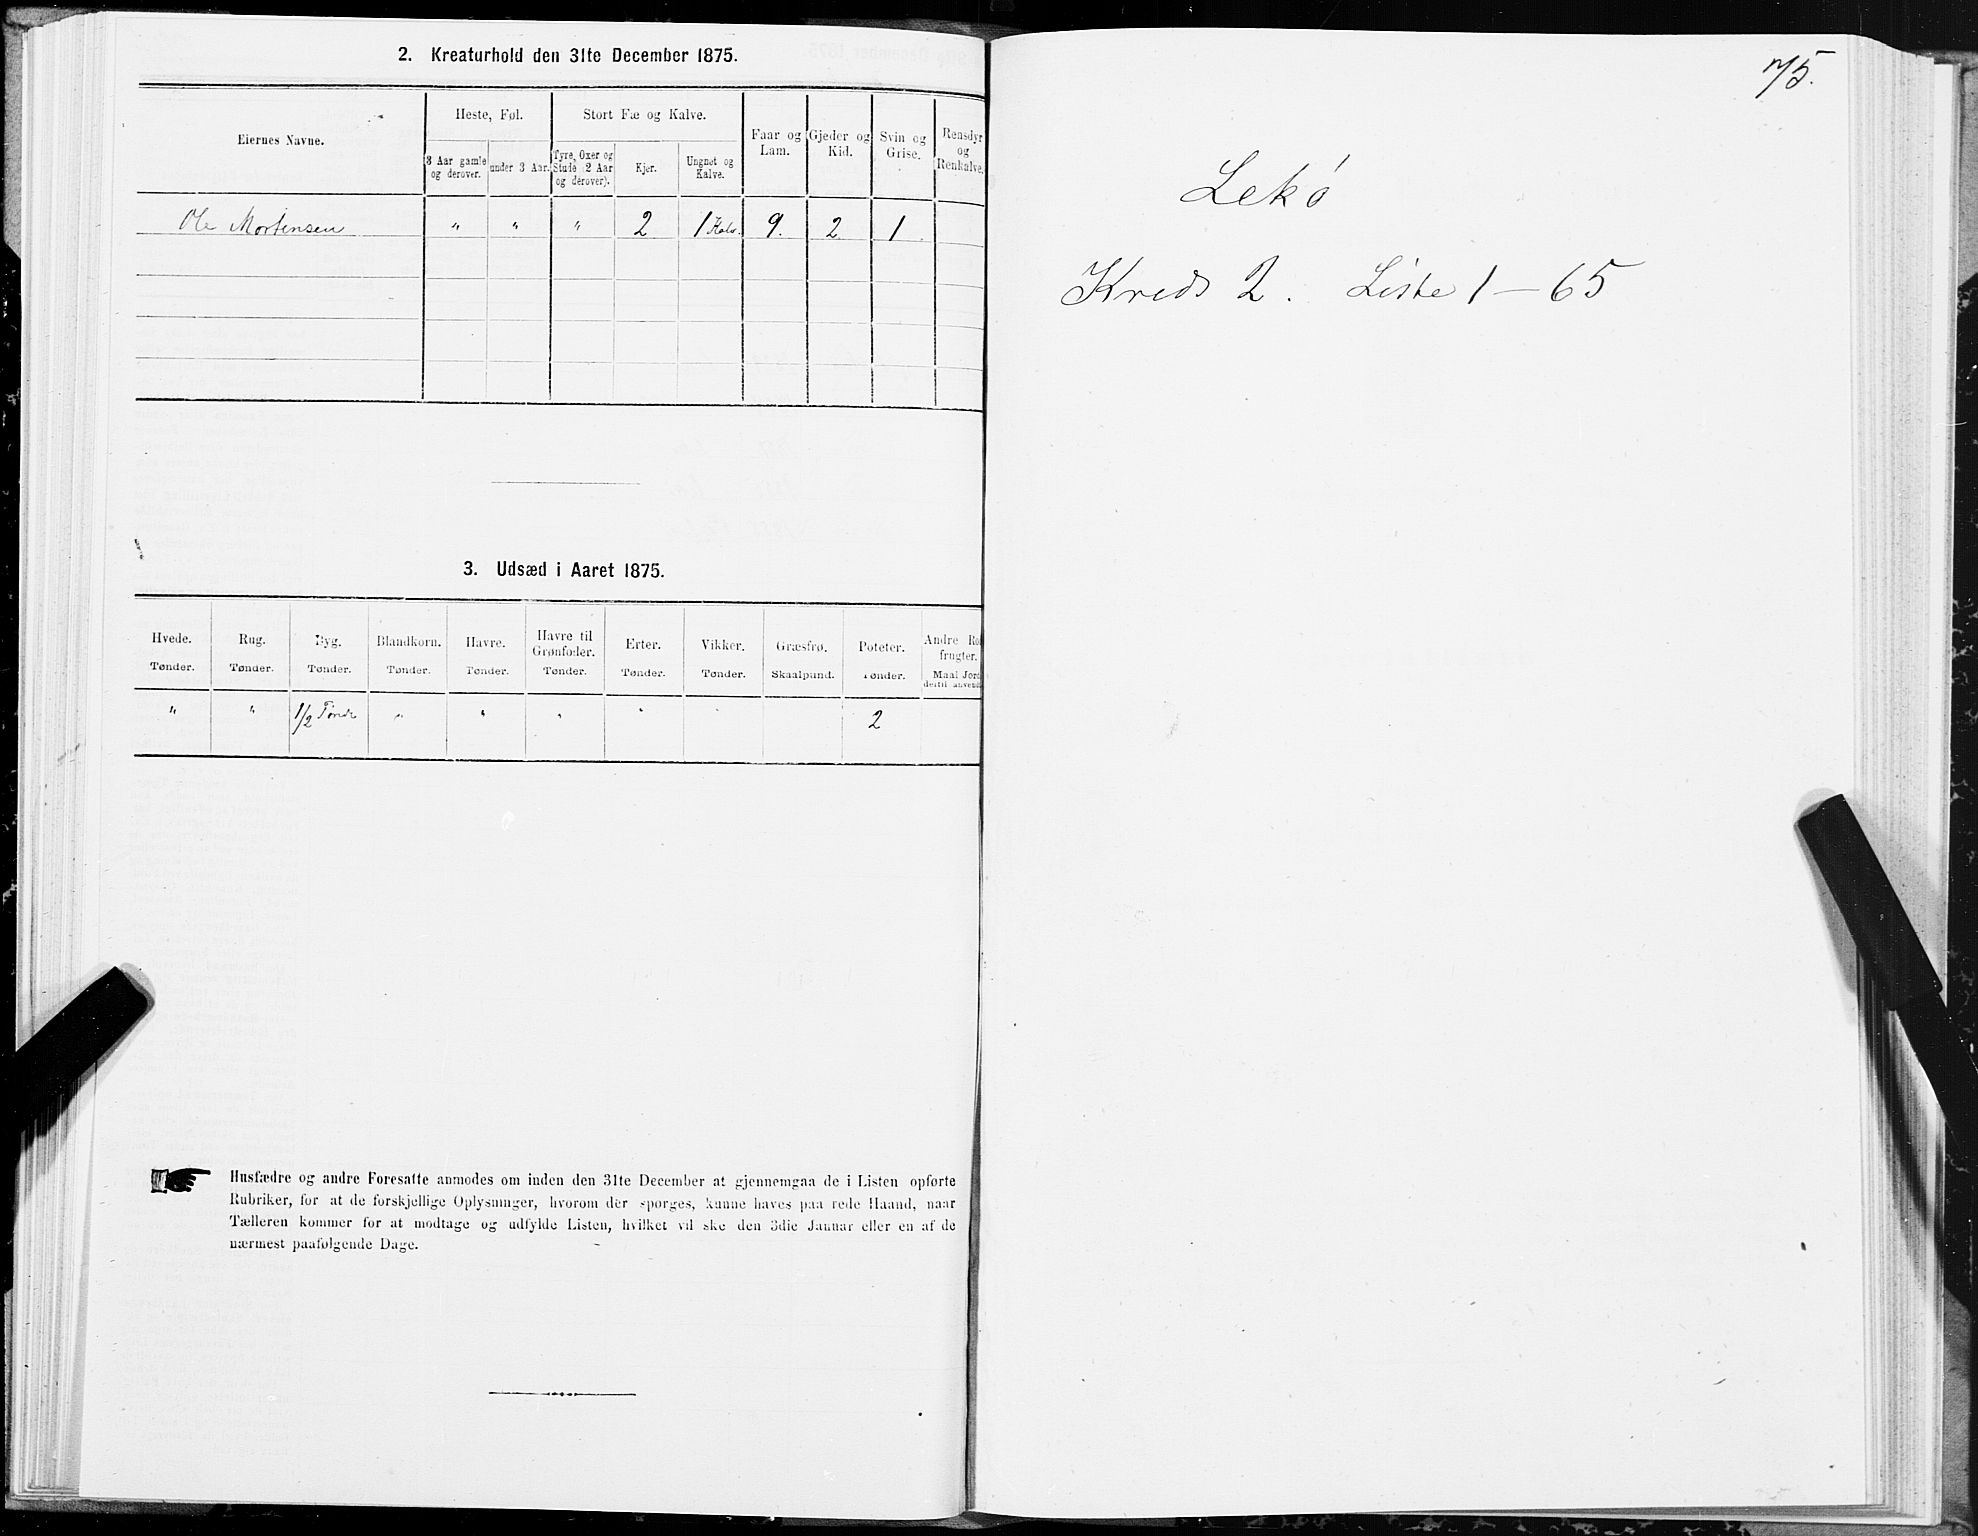 2. Kreaturhold den 31te December 1875.
Eiernes Navne.
Heste, Føl.
Stort Fæ og Kalve.
Faar og Lam.
Gjeder og Kid.
Svin og Grise.
Rensdyr og Renkalve.
3 Aar gamle og derover.
under 3 Aar.
Tyre, Oxer og Stude (2 Aar og derover).
Kjør.
Ungnøt og Kalve.
Ole Mortensen " " " 2 1 Kalv. 9. 2 1
3. Udsæd i Aaret 1875.
Hvede. Rug. Byg. Blandkorn. Havre. Havre til Grønfoder. Erter. Vikker. Græsfrø. Poteter. Andre Ro frugter.
Tønder. Tønder. Tønder. Tønder. Tønder. Tønder. Tønder. Tønder. Skaalpund. Tønder. Maal Jord dertil anvend
" " 1/2 Tønde " " " " 2
Husfædre og andre Foresatte anmodes om inden den 31te December at gjennemgaa de i Listen opførte
Rubriker, for at de forskjellige Oplysninger, hvorom der spørges, kunne haves paa rede Haand, naar
Tælleren kommer for at modtage og udfylde Listen, hvilket vil ske den 3die Januar eller en af de
nærmest paafølgende Dage.
75.
Lekø
Kreds 2. Liste 1—65